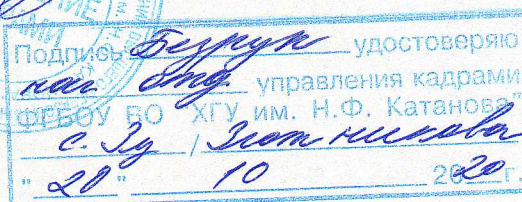 Подпись Безрук удостоверяю
нач отд управления кадрами
ФГБОУ ВО "ХГУ им. Н.Ф. Катанова"
/ Злотникова
"20" 10 2020 г.